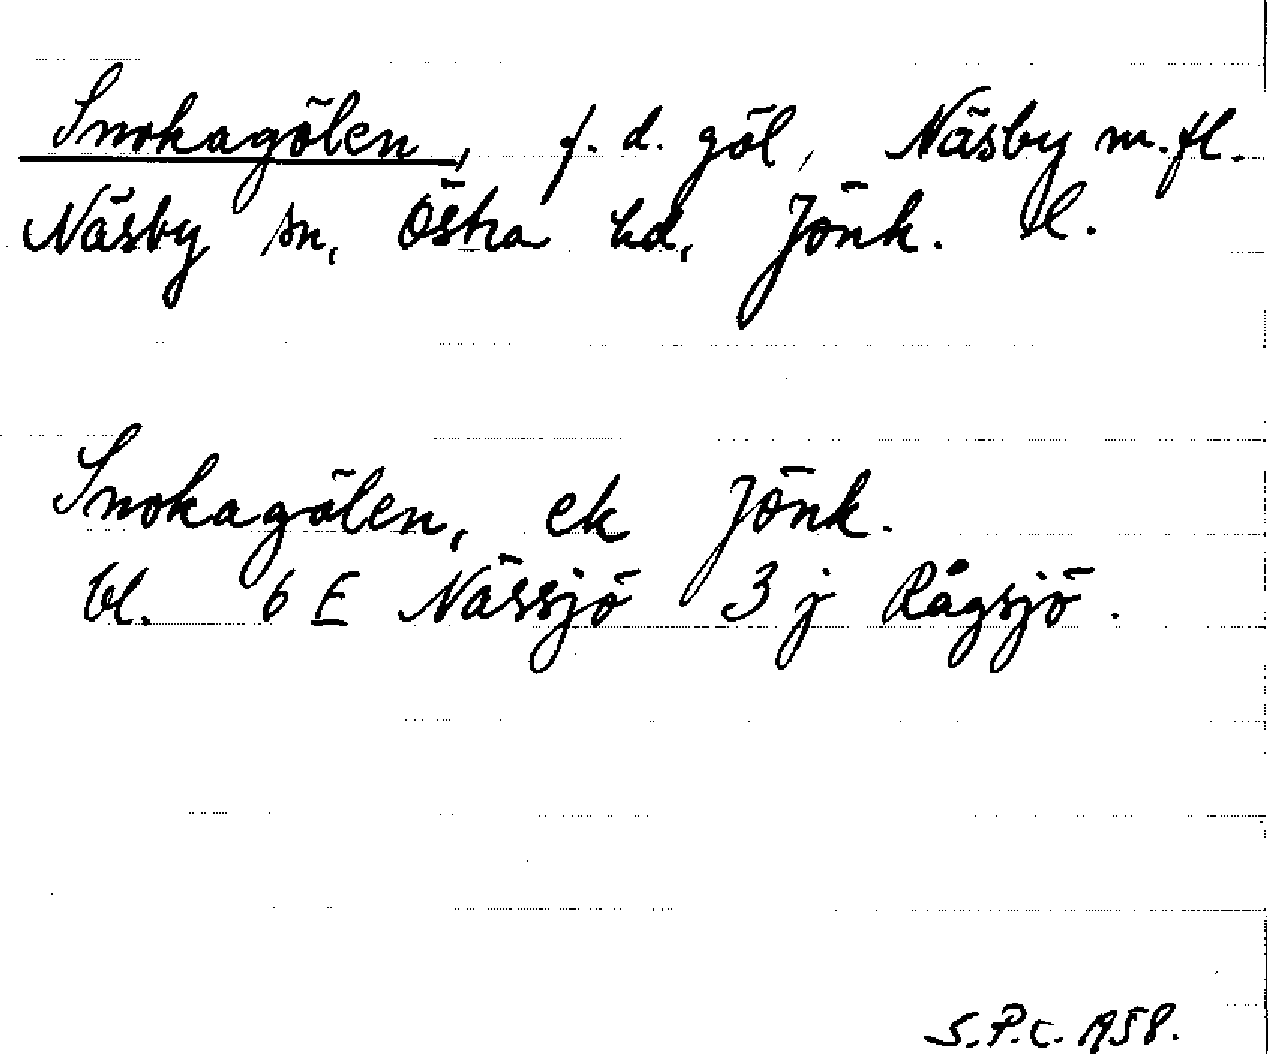 Snokagölen, f.d. göl, Näsby m.fl.
Näsby sn, Östra hd, Jönk. l.
Snokagölen, ek Jönk.
bl. 6 E Nässjö 3 j Rågsjö.
S.P.C. 1958.